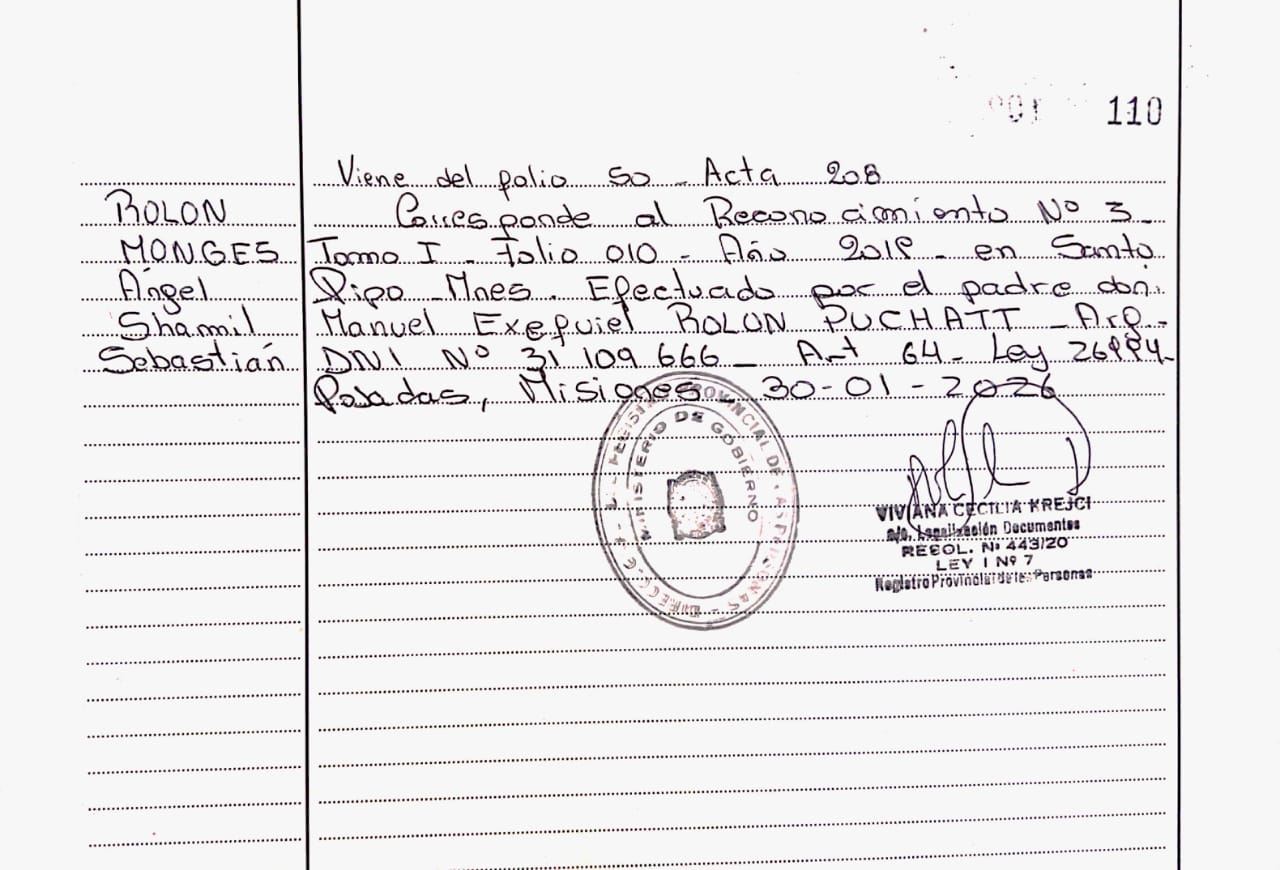 110
Viene del folio 50 - Acta 208
ROLON
Corresponde al Reconocimiento Nº 3 -
MONGES
Tomo I - Folio 010 - Año 2018 - en Santo
Ángel
Pipo - Mnes. Efectuado por el padre don:
Shamil
Manuel Exequiel ROLON PUCHATT - Arg -
Sebastián
DNI Nº 31 109 666 - Art 64 - Ley 26994 -
Posadas, Misiones - 30-01-2026
MINISTERIO DE GOBIERNO
VIVIANA CECILIA KREJCI
a/c. Legalización Documentos
RESOL. Nº 443/20
LEY I Nº 7
Registro Provincial de las Personas